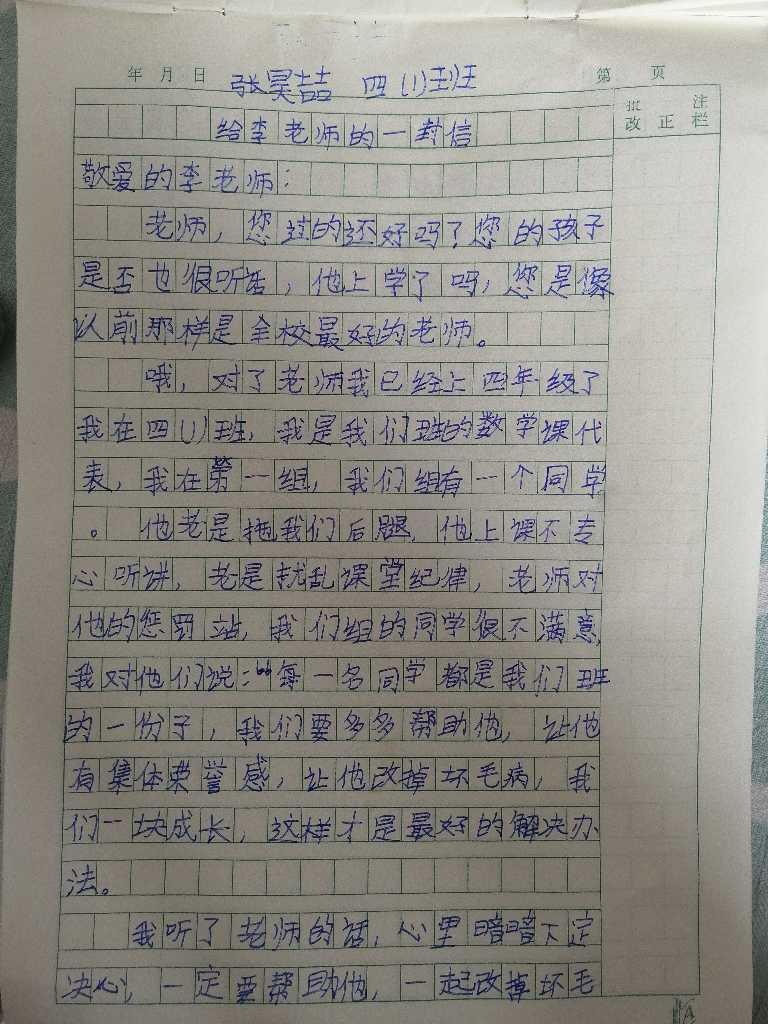 年 月 日 张昊喆 四(1)班 第 页
批 注
改 正 栏
给李老师的一封信
敬爱的李老师：
老师，您过的还好吗？您的孩子
是否也很听话，他上学了吗，您是像
以前那样是全校最好的老师。
哦，对了老师我已经上四年级了
我在四(1)班，我是我们班的数学课代
表，我在第一组，我们组有一个同学
。他老是拖我们后腿，他上课不专
心听讲，老是扰乱课堂纪律，老师对
他的惩罚站，我们组的同学很不满意，
我对他们说：“每一名同学都是我们班
的一份子，我们要多多帮助他，让他
有集体荣誉感，让他改掉坏毛病，我
们一块成长，这样才是最好的解决办
法。
我听了老师的话，心里暗暗下定
决心，一定要帮助他，一起改掉坏毛